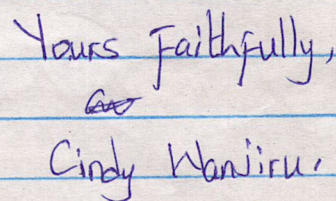 Yours Faithfully,
Cindy Wanjiru.